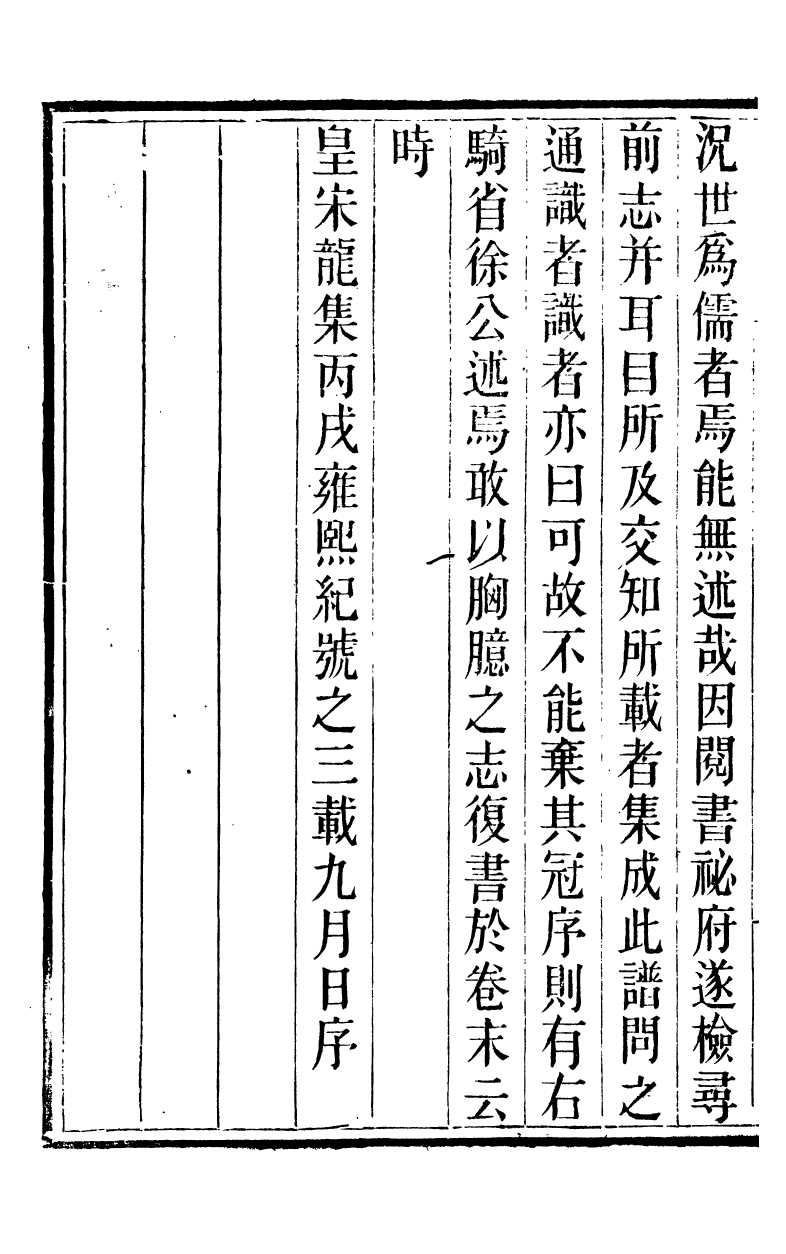 況世爲儒者焉能無述哉因閱書祕府遂檢尋
前志并耳目所及交知所載者集成此譜問之
通識者識者亦曰可故不能棄其冠序則有右
騎省徐公述焉敢以胸臆之志復書於卷末云
時
皇宋龍集丙戌雍熙紀號之三載九月日序